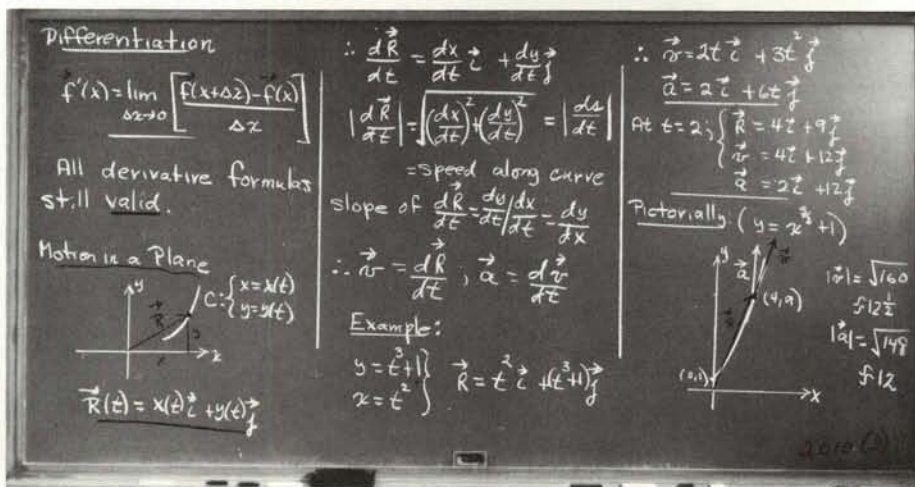 Differentiation
f⃗'(x) = lim Δx→0 [ (f⃗(x+Δx) - f⃗(x)) / Δx ]
All derivative formulas
still valid.
Motion in a Plane
y
R⃗
C: { x = x(t)
y = y(t)
y
x
x
R⃗(t) = x(t) i⃗ + y(t) j⃗
∴ dR⃗/dt = dx/dt i⃗ + dy/dt j⃗
|dR⃗/dt| = √((dx/dt)² + (dy/dt)²) = |ds/dt|
= speed along curve
slope of dR⃗/dt = dy/dt / dx/dt = dy/dx
∴ v⃗ = dR⃗/dt ; a⃗ = dv⃗/dt
Example:
y = t³+1 }
x = t² } R⃗ = t² i⃗ + (t³+1) j⃗
∴ v⃗ = 2t i⃗ + 3t² j⃗
a⃗ = 2 i⃗ + 6t j⃗
At t = 2; { R⃗ = 4i⃗ + 9j⃗
v⃗ = 4i⃗ + 12j⃗
a⃗ = 2i⃗ + 12j⃗
Pictorially: (y = x^(3/2) + 1)
y
a⃗
v⃗
R⃗
(4,9)
(0,1)
x
|v⃗| = √160
≈ 12 1/2
|a⃗| = √148
≈ 12